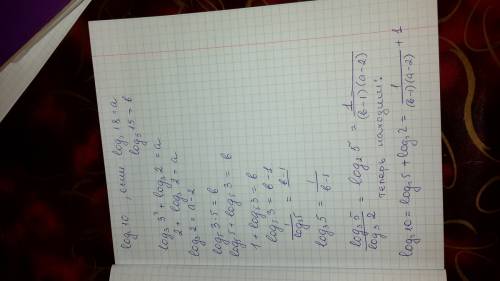 log₂10, если log₃18=a
log₅15=b
log₃3²+log₃2=a
2+log₃2=a
log₃2=a-2
log₅3·5=b
log₅5+log₅3=b
1+log₅3=b
log₅3=b-1
1/log₃5=b-1
log₃5=1/(b-1)
log₃5/log₃2=log₂5=1/((b-1)(a-2))
теперь находим:
log₂10=log₂5+log₂2=1/((b-1)(a-2))+1